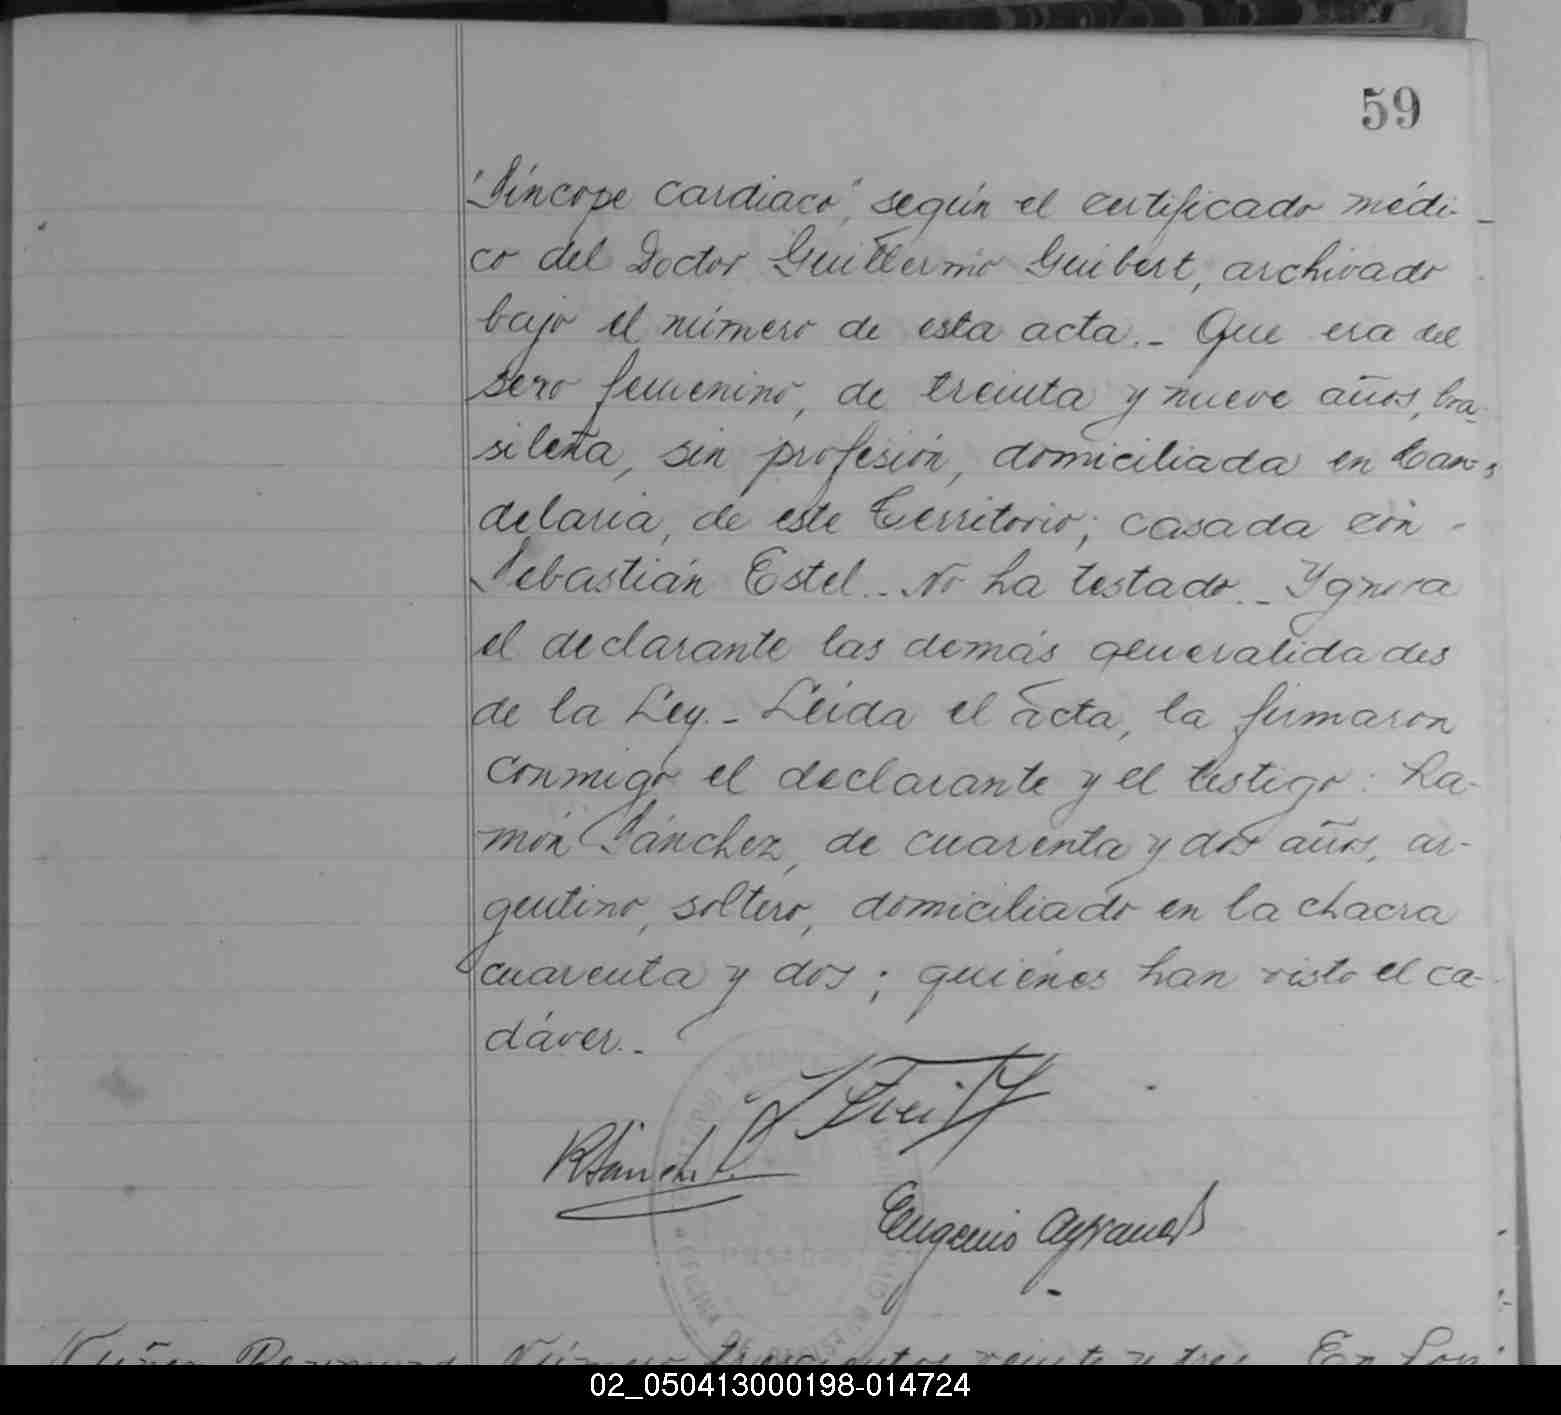 59
"Síncope cardiaco", según el certificado médi-
co del Doctor Guillermo Guibert, archivado
bajo el número de esta acta.- Que era del
sexo femenino, de treinta y nueve años, bra-
sileña, sin profesión, domiciliada en Can-
delaria, de este Territorio; casada con
Sebastián Estel.- No ha testado.- Ygnora
el declarante las demás generalidades
de la Ley.- Leida el acta, la firmaron
conmigo el declarante y el testigo: Ra-
món Sánchez, de cuarenta y dos años, ar-
gentino, soltero, domiciliado en la chacra
cuarenta y dos; quienes han visto el ca-
dáver.-
RSánchez
Eugenio
OFICINA
Número trescientos veinte y tres. En
02_050413000198-014724